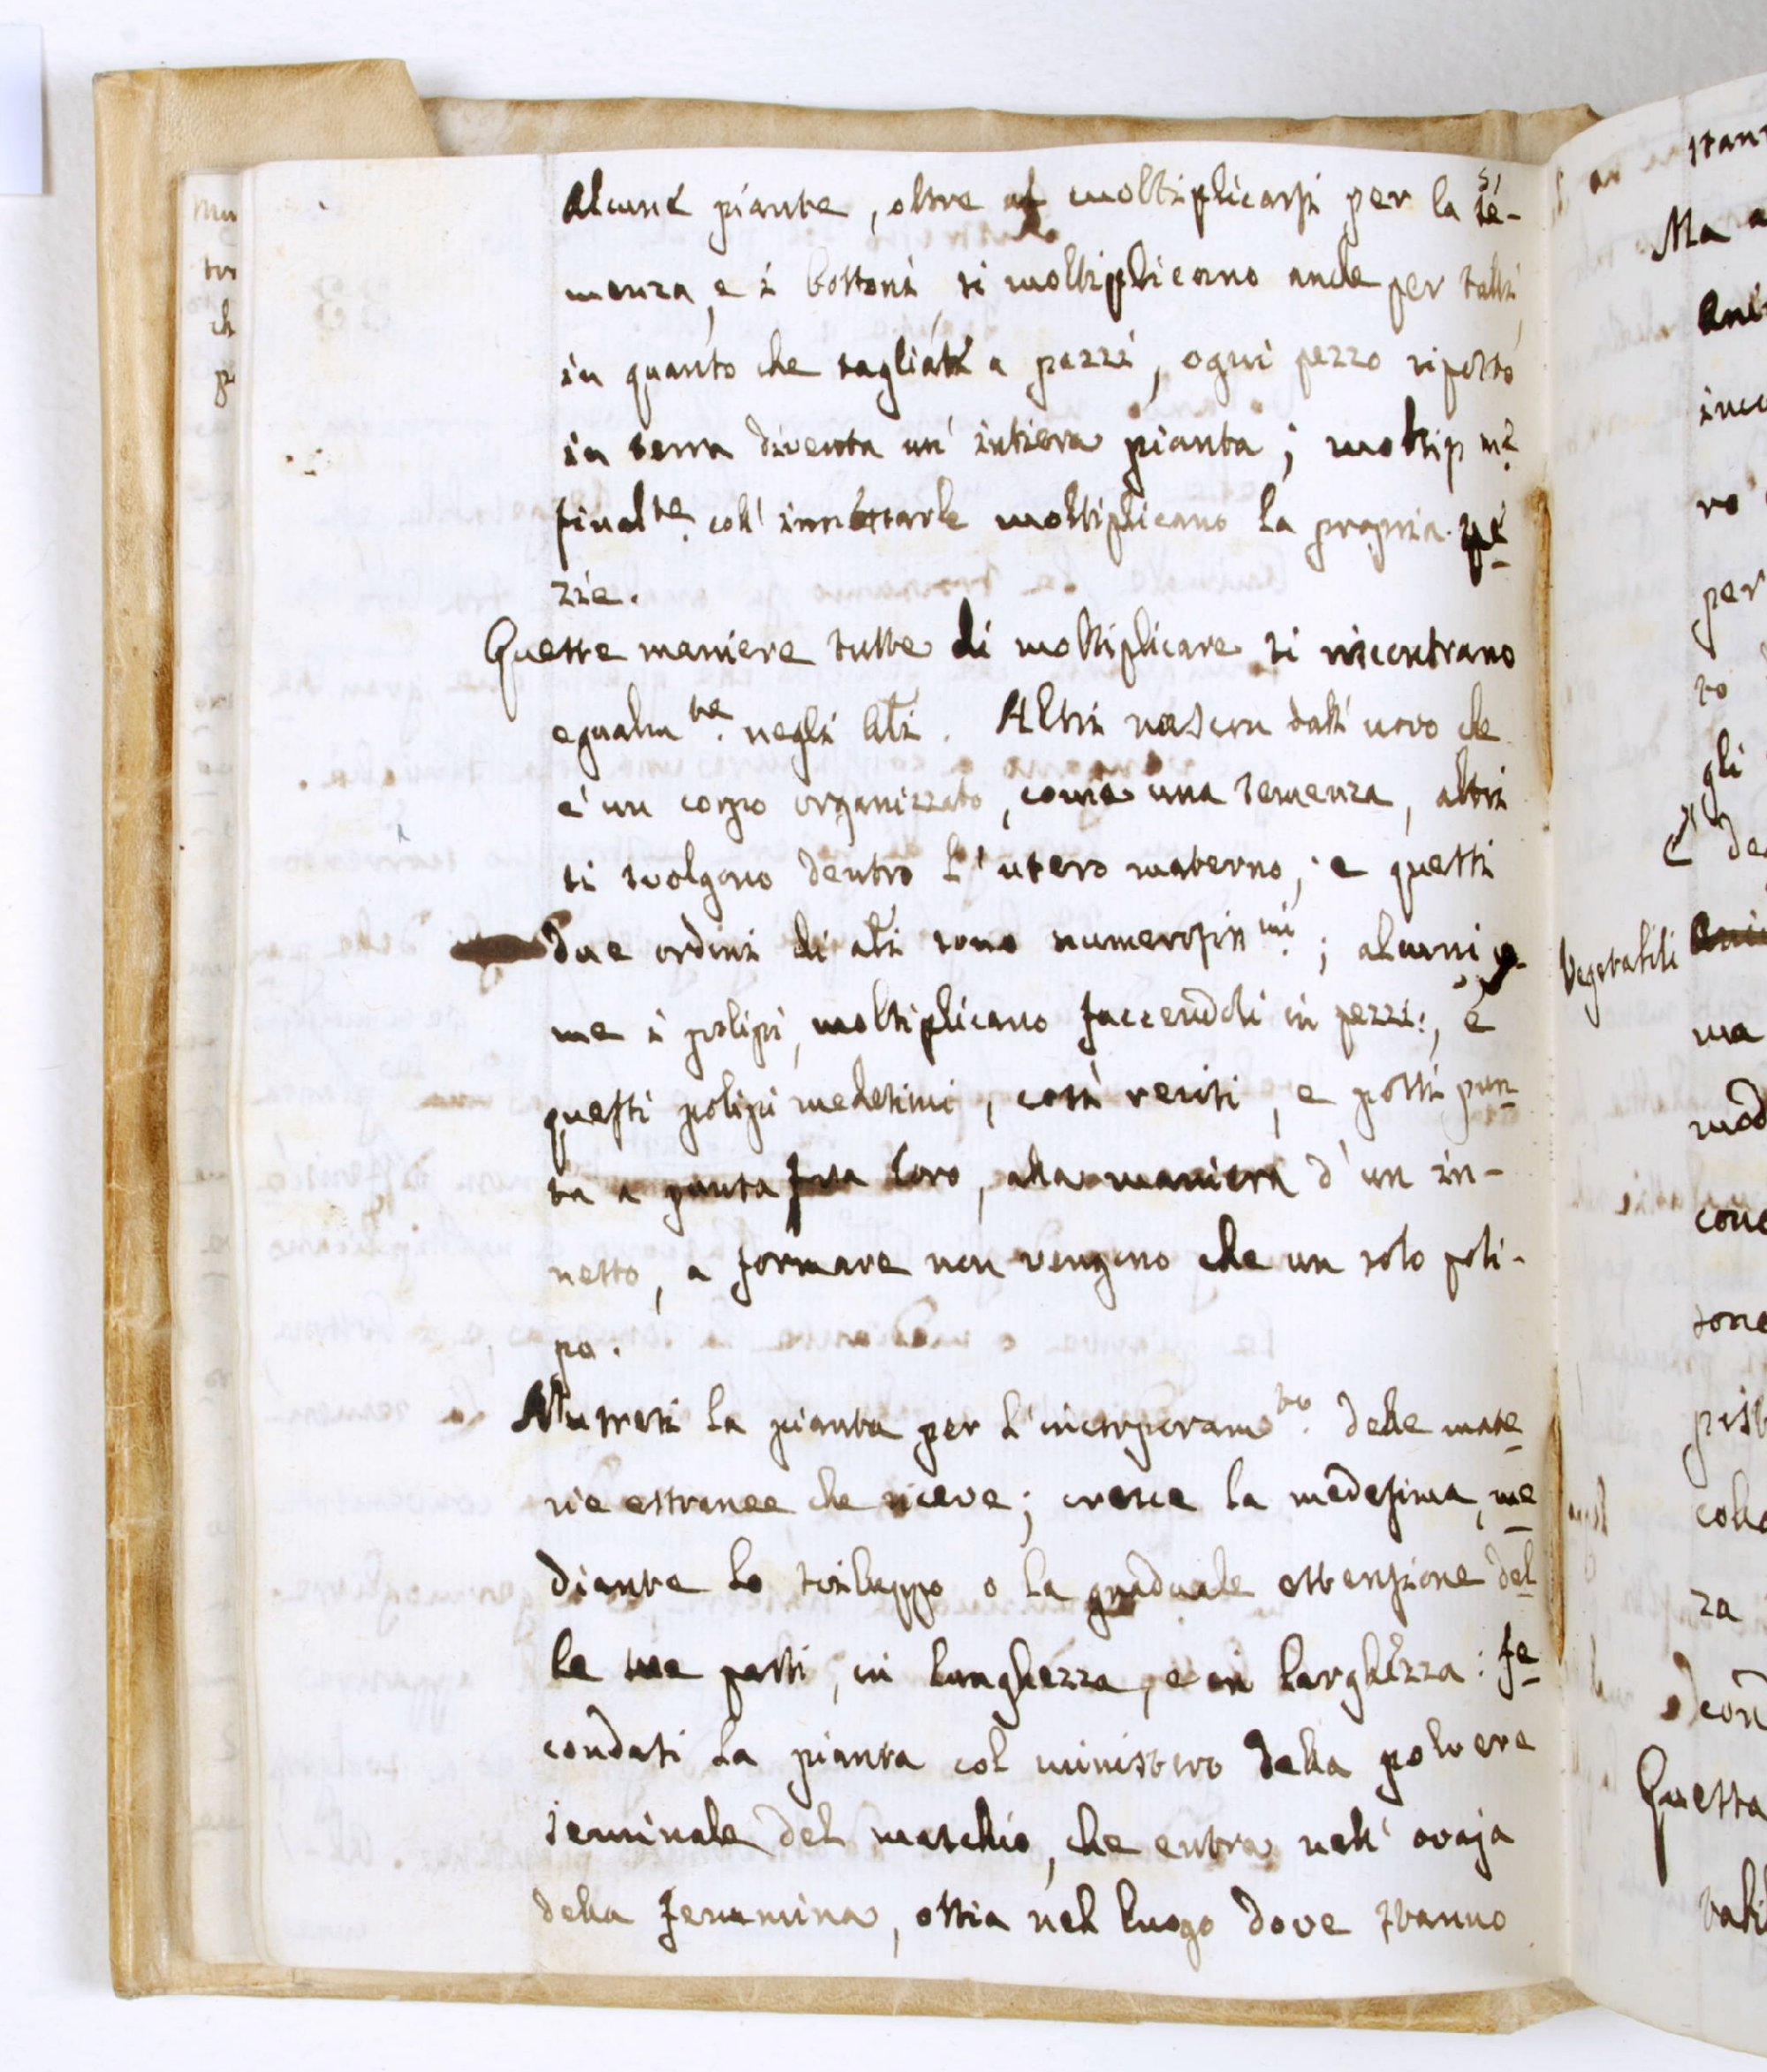 Alcune piante, oltre al moltiplicarsi per la se-
menza, e i bottoni si moltiplicano anche per talli,
in quanto che tagliati a pezzi, ogni pezzo riposto
in terra diventa un' intiera pianta;
final.te coll' innestarle moltiplicano la propria spe
zie.
Queste maniere tutte di moltiplicare si riscontrano
egualm.te negli ali. Altri nascon dall' uovo che
e' un corpo organizzato, come una semenza, altri
si svolgono dentro l' utero materno; e questi
due ordini di ali sono numerosiss.mi; alcuni co
me i polipi, moltiplicano faccendoli in pezzi; e
questi polipi medesimi, così recisi, e posti pun
ta a punta fra loro, alla maniera d' un in-
nesto, a formare non vengono che un solo poli-
po.
Nutresi la pianta per l' incorporam.to delle mate
rie estranee che riceve; cresce la medesima, me
diante lo sviluppo o la graduale estensione del
le sue parti, in lunghezza, e in larghezza: fe
condasi la pianta col ministero della polvere
seminale del maschio, che entra nell' ovaja
della femmina, ossia nel luogo dove stanno
Ma a
per
gli
Vegetabili
Questa